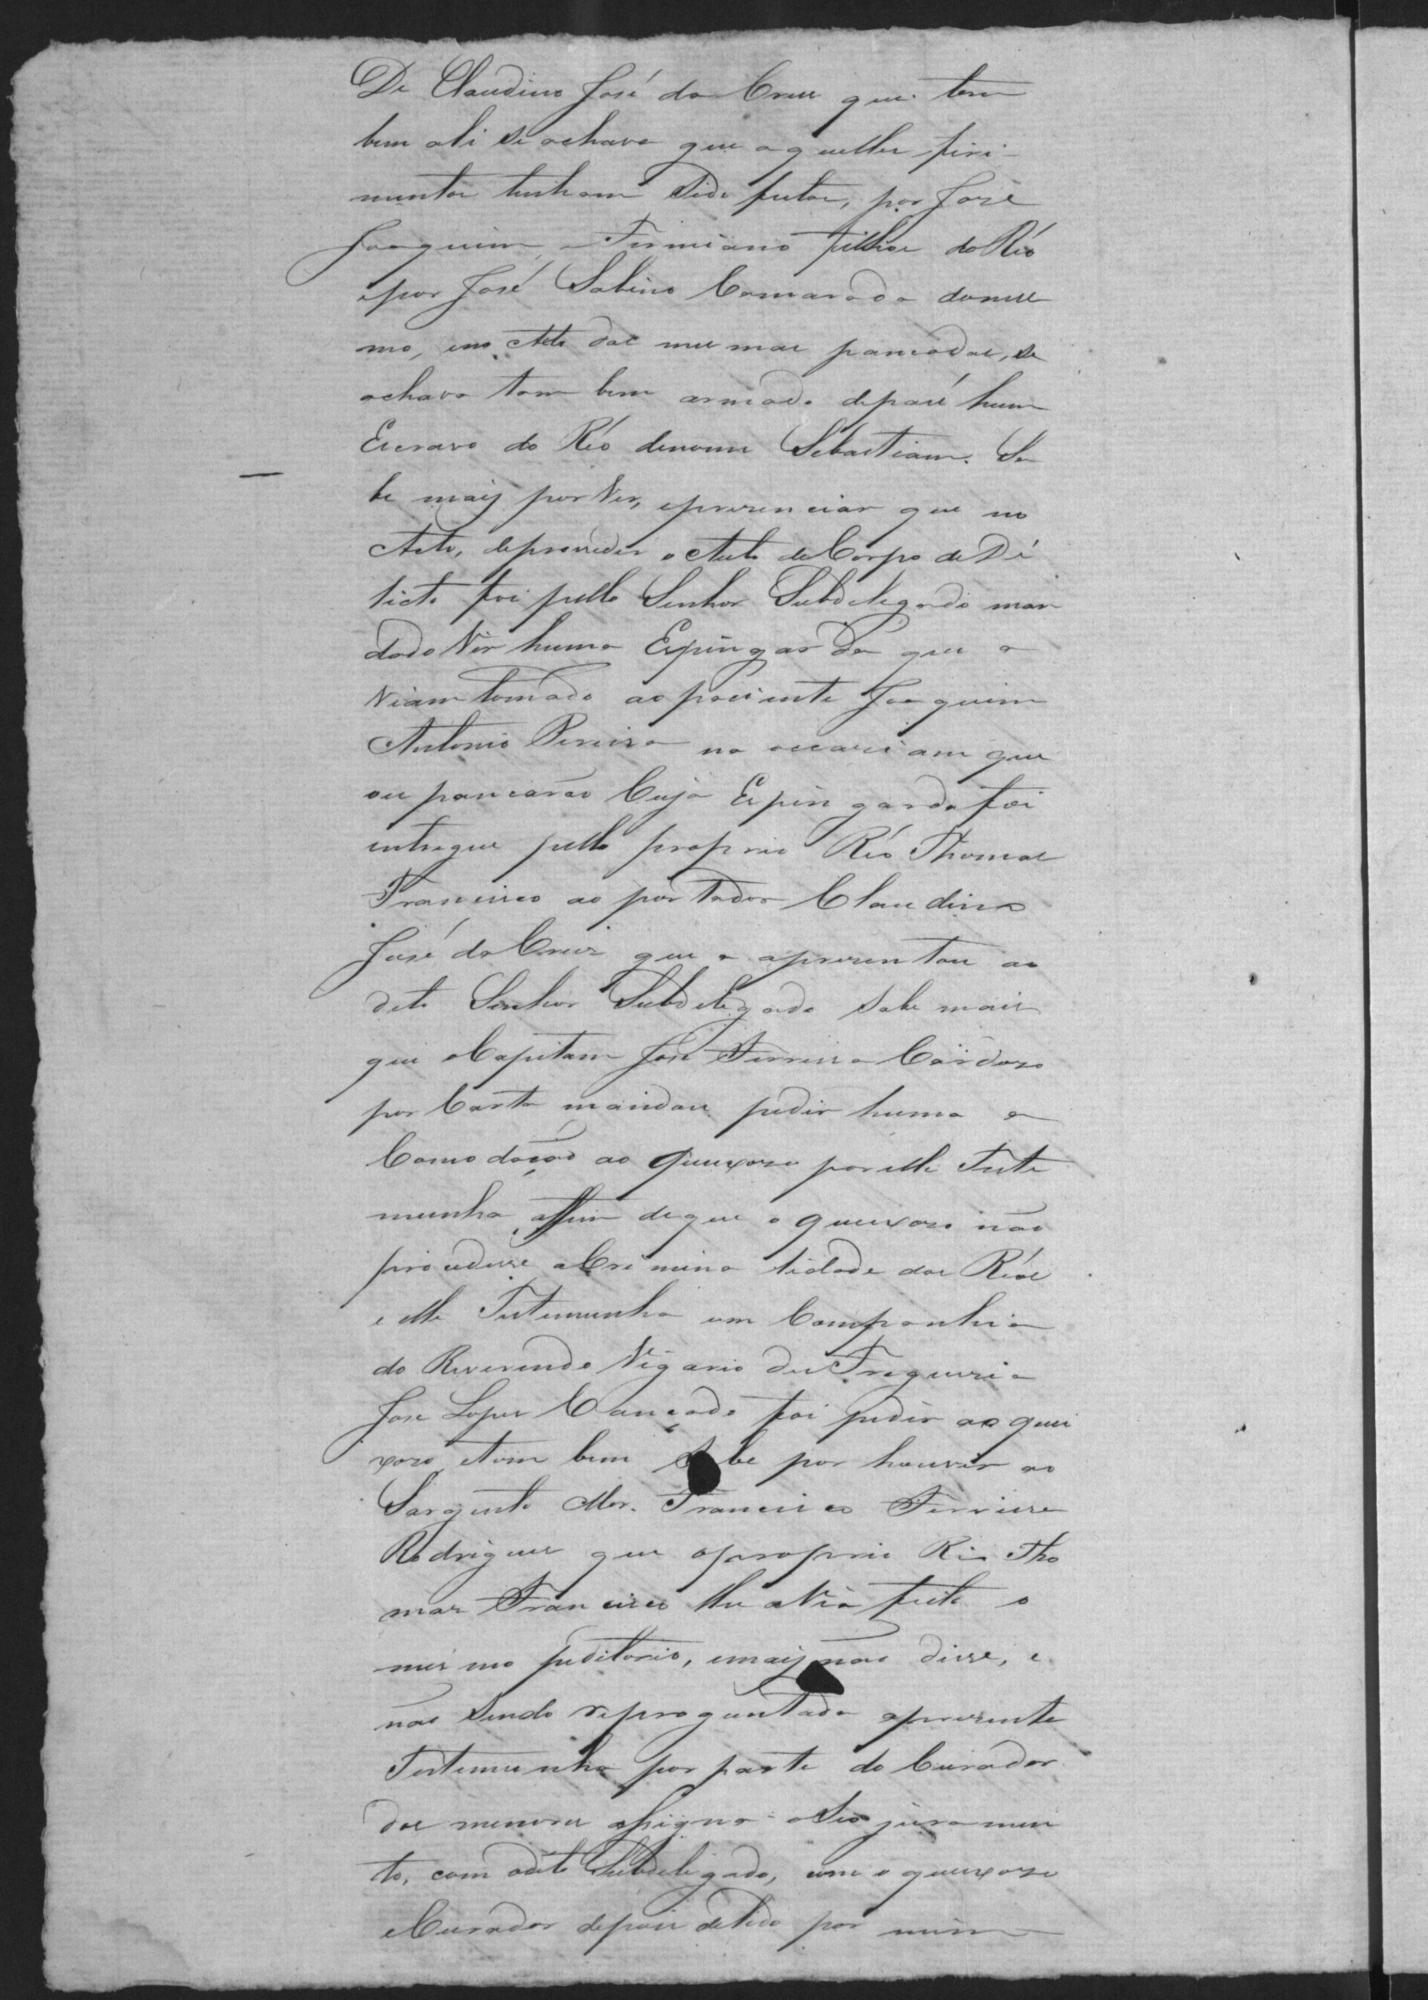 De Claudino José da Cruz que tam
bem ali se achava que aquelles firi
mentos tinham Sido feitos, por José
Joaquim, e Firmiano filhos do Réo
e por José Sabino Camarada domes
mo, eno Acto das mesmas pancadas, se
achava tam bem armado depaú hum
Escravo do Réo denome Sebastiam. Sa
be maiz por Ver, eprezenciar que no
Acto, deproceder o Auto de Corpo de De
licto foi pello Senhor Subdelegado man
dado Vir huma Espingarda que a
Viam tomado ao paciente Joaquim
Antonio Pereira na occaziam que
os pancarão Cuja Espingarda foi
entregue pello proprio Réo Thomas
Francisco ao portador Claudino
José da Cruz que a aprezentou ao
dito Senhor Subdelegado Sabe mais
que o Capitam José Ferreira Cardozo
por Carta mandou pedir huma a
Comodação ao Queixozo por elle Teste
munha, affim deque o queixozo não
procedesse a Crimina lidade dos Réos
e elle Testemunha em Companhia
do Reverendo Vigario da Freguezia
José Lopes Cançado foi pedir ao quei
xozo, etam bem Sabe por houvir ao
Sargento Mor. Francisco Ferreira
Rodrigues que o proprio Réo Tho
mas Francisco lhe aVia feito o
mesmo peditorio, emaiz não disse, e
não Sendo reproguntada aprezente
Testemunha por parte do Curador
dos menores assigna oSeo juramen
to, com odito Subdelegado, com o queixozo
eCurador depois delido por mim